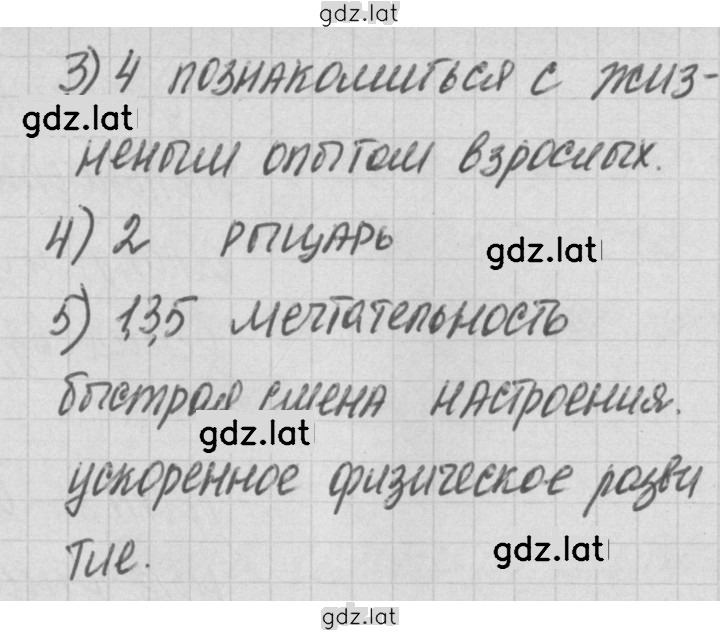 gdz.lat
3) 4 познакомиться с жиз-
gdz.lat
неным опытом взрослых.
4) 2 рыцарь
gdz.lat
5) 1,3,5 мечтательность
быстрая смена настроения.
gdz.lat
ускоренное физическое разви
gdz.lat
тие.
gdz.lat